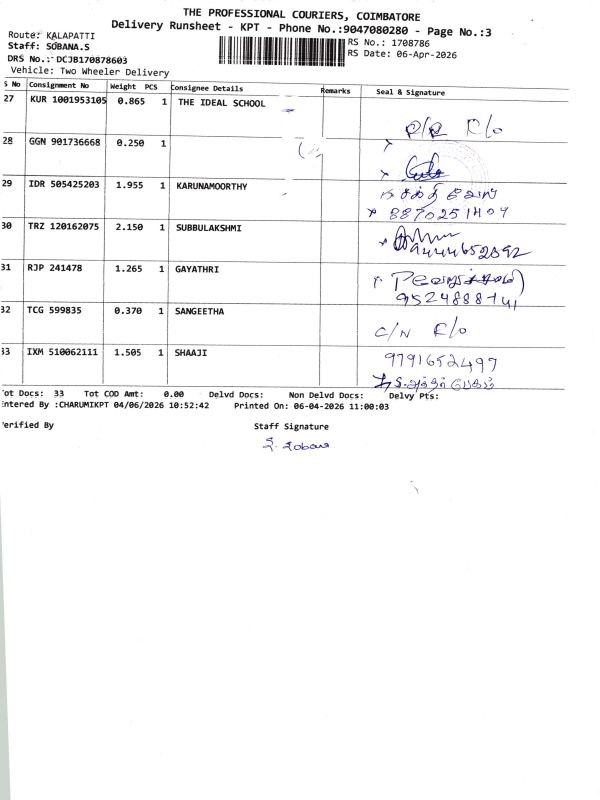 THE PROFESSIONAL COURIERS, COIMBATORE
Delivery Runsheet - KPT - Phone No.:9047080280 - Page No.:3
Route: KALAPATTI
Staff: SOBANA.S
RS No.: 1708786
DRS No.: DCJB170878603
RS Date: 06-Apr-2026
Vehicle: Two Wheeler Delivery
S No Consignment No Weight PCS Consignee Details Remarks Seal & Signature
27 KUR 1001953105 0.865 1 THE IDEAL SCHOOL
R/R R/o
28 GGN 901736668 0.250 1
29 IDR 505425203 1.955 1 KARUNAMOORTHY
8870251404
30 TRZ 120162075 2.150 1 SUBBULAKSHMI
9444652892
31 RJP 241478 1.265 1 GAYATHRI
9524888741
32 TCG 599835 0.370 1 SANGEETHA
C/N R/o
33 IXM 510062111 1.505 1 SHAAJI
9791652497
Tot Docs: 33 Tot COD Amt: 0.00 Delvd Docs: Non Delvd Docs: Delvy Pts:
Entered By :CHARUMIKPT 04/06/2026 10:52:42 Printed On: 06-04-2026 11:00:03
Verified By Staff Signature